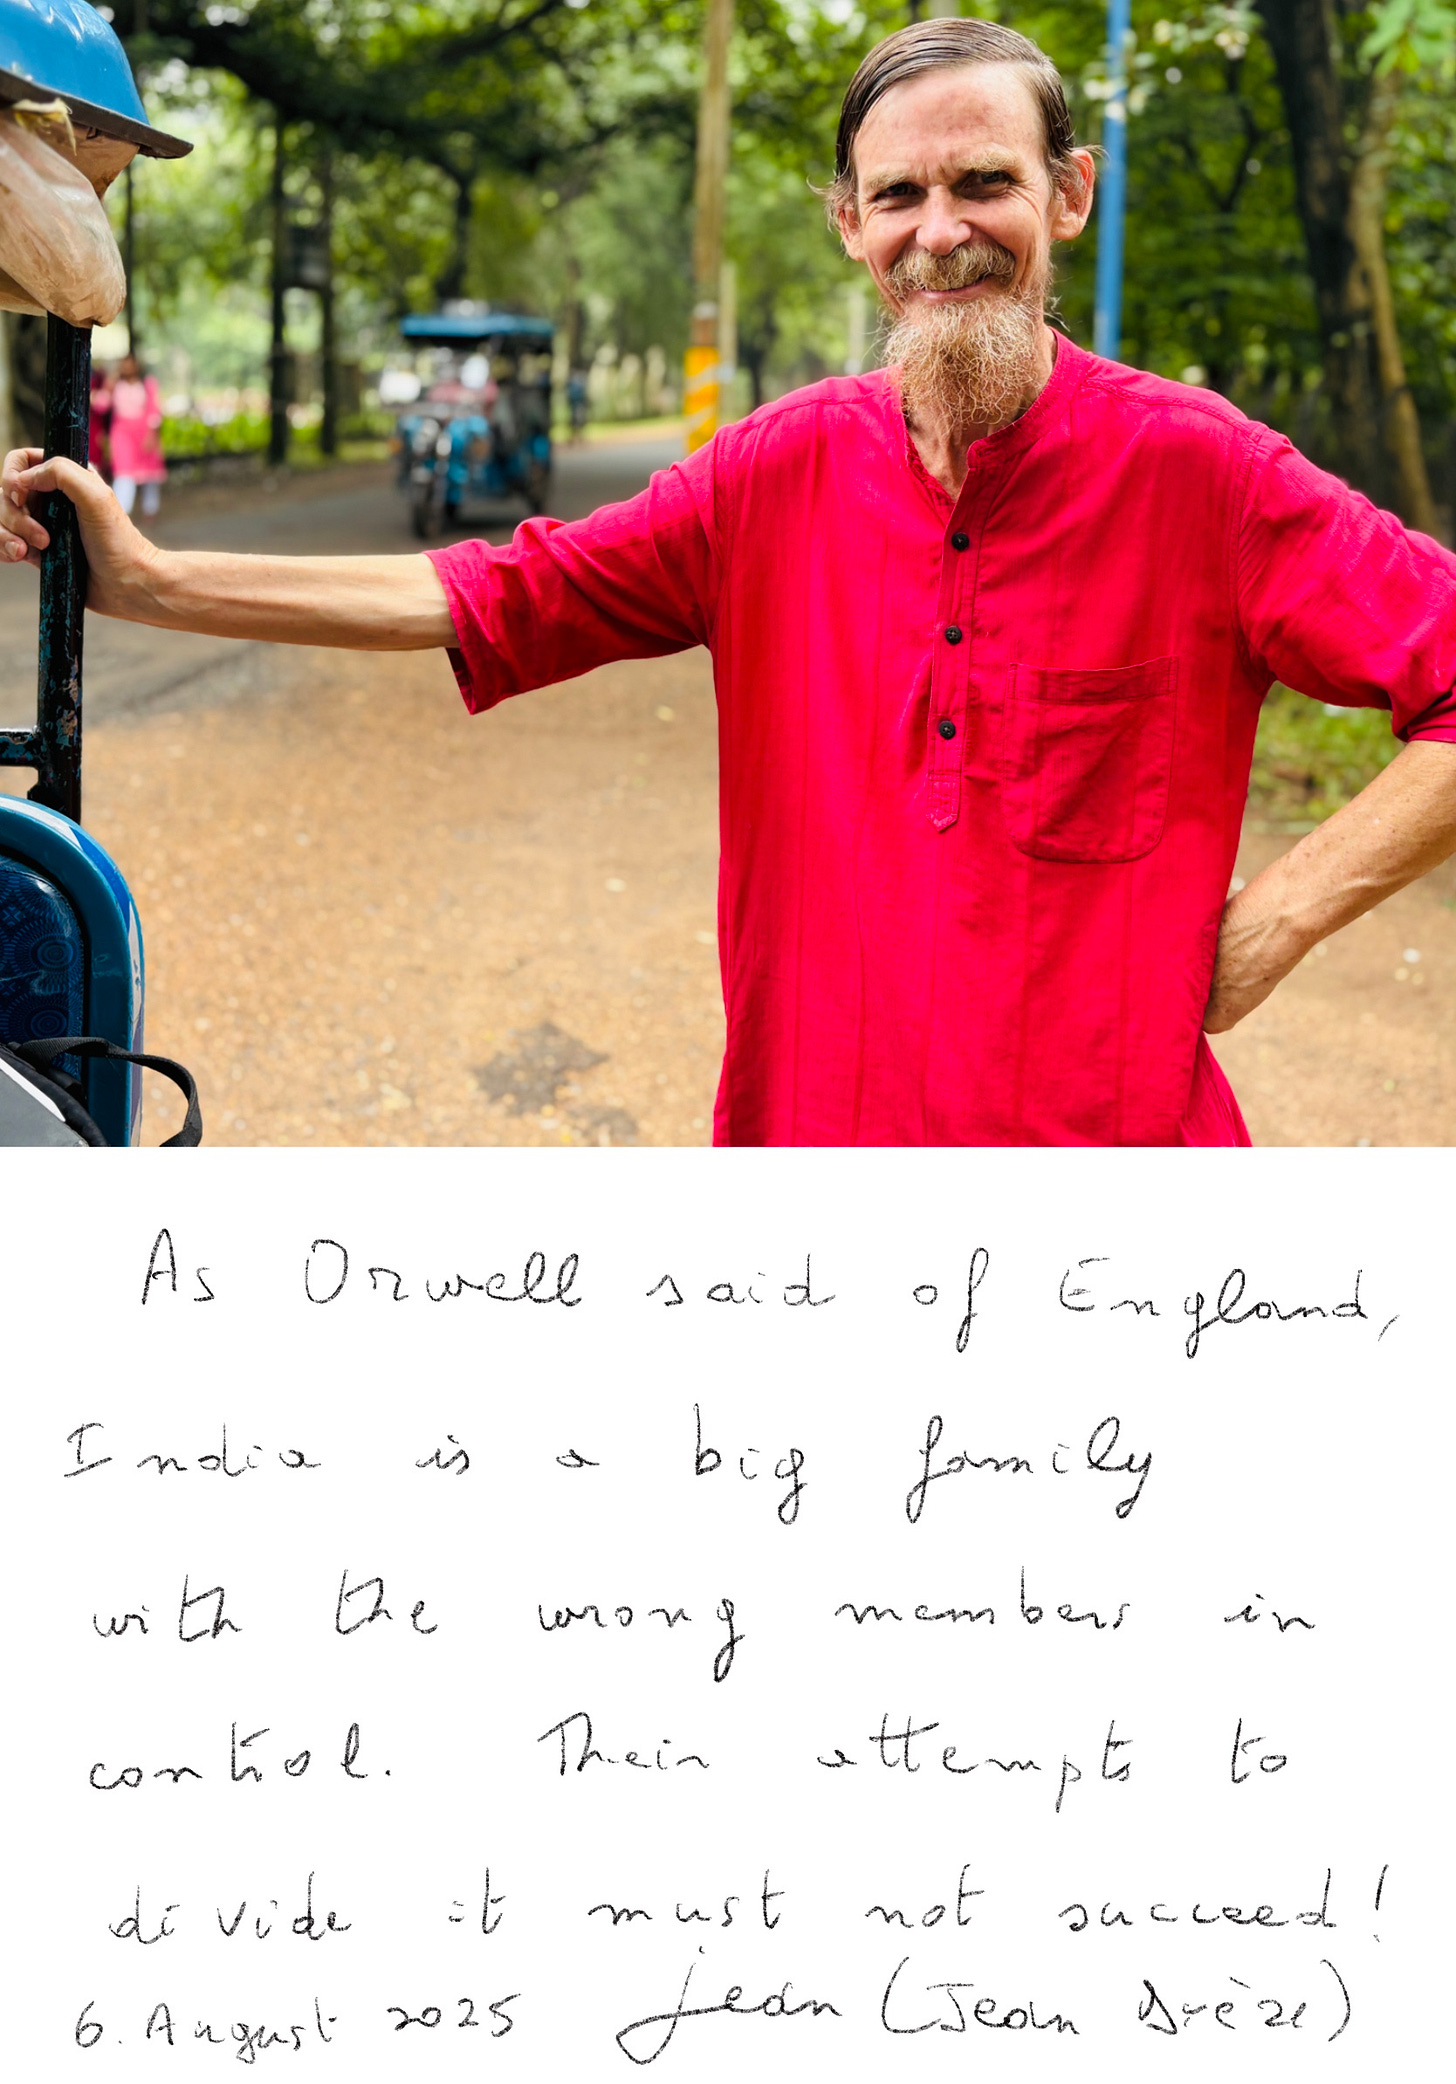 As Orwell said of England,
India is a big family
with the wrong members in
control. Their attempts to
divide it must not succeed!
6. August 2025 jean (Jean Drèze)